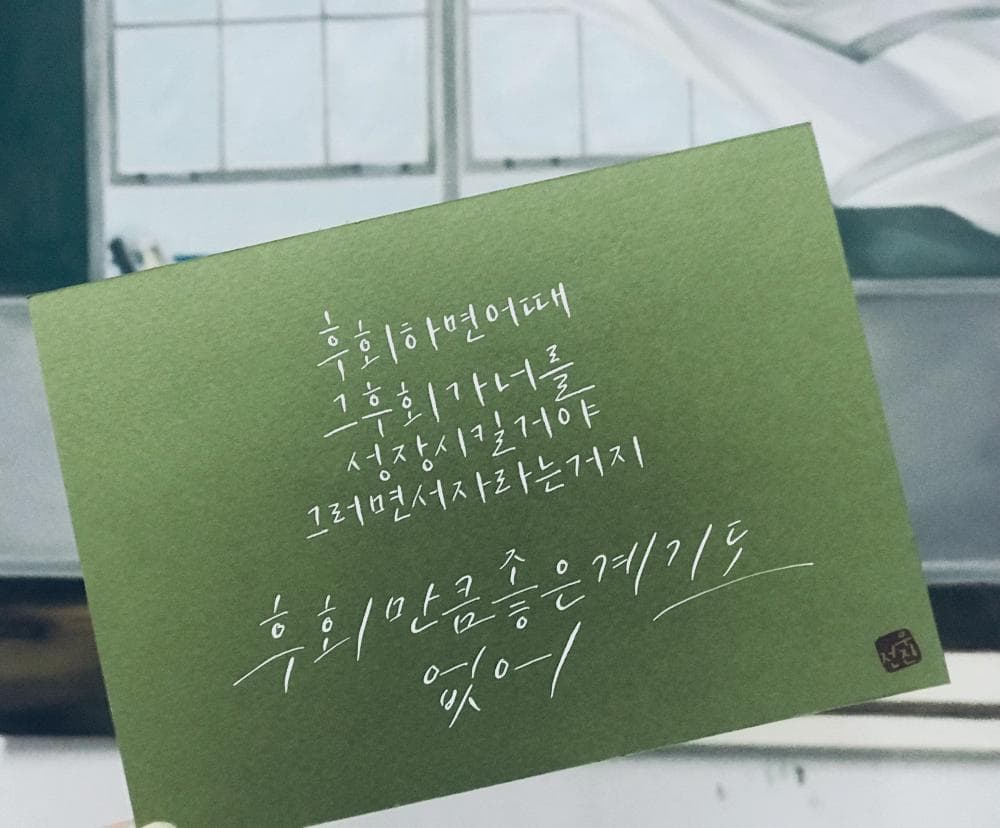 후회하면어때
그후회가너를
성장시킬거야
그러면서자라는거지
후회만큼좋은계기도
없어